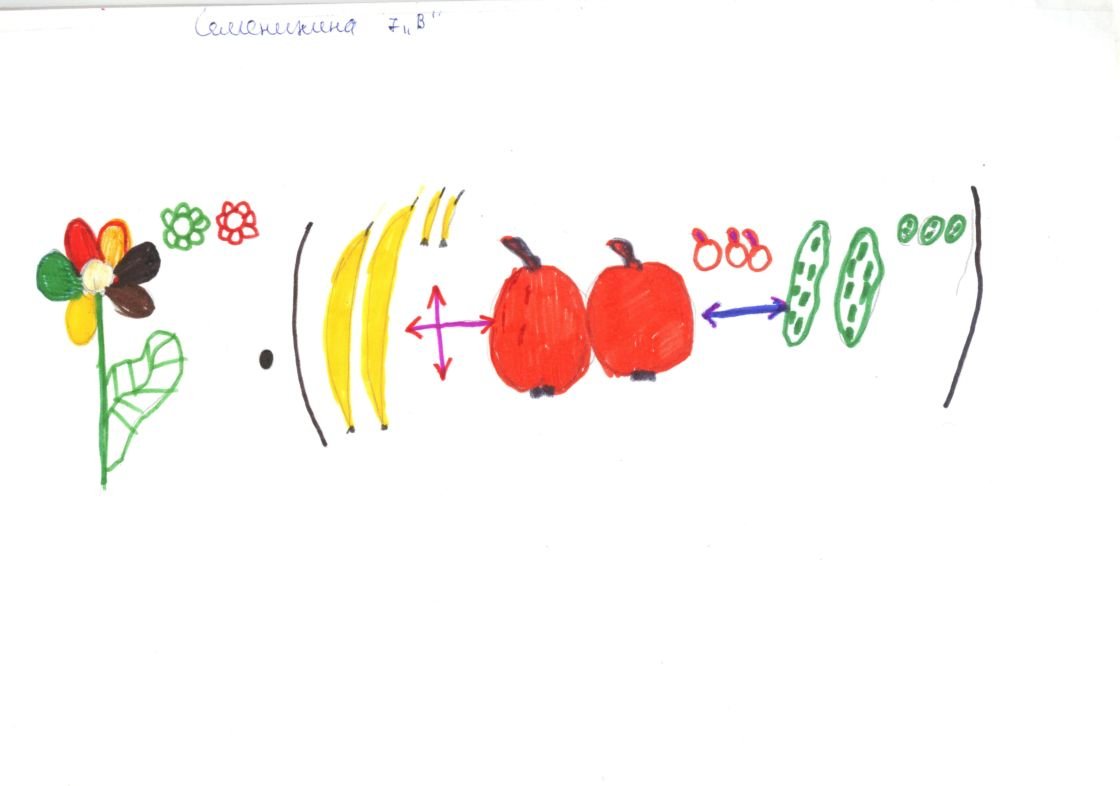 Семенихина 7 „В"